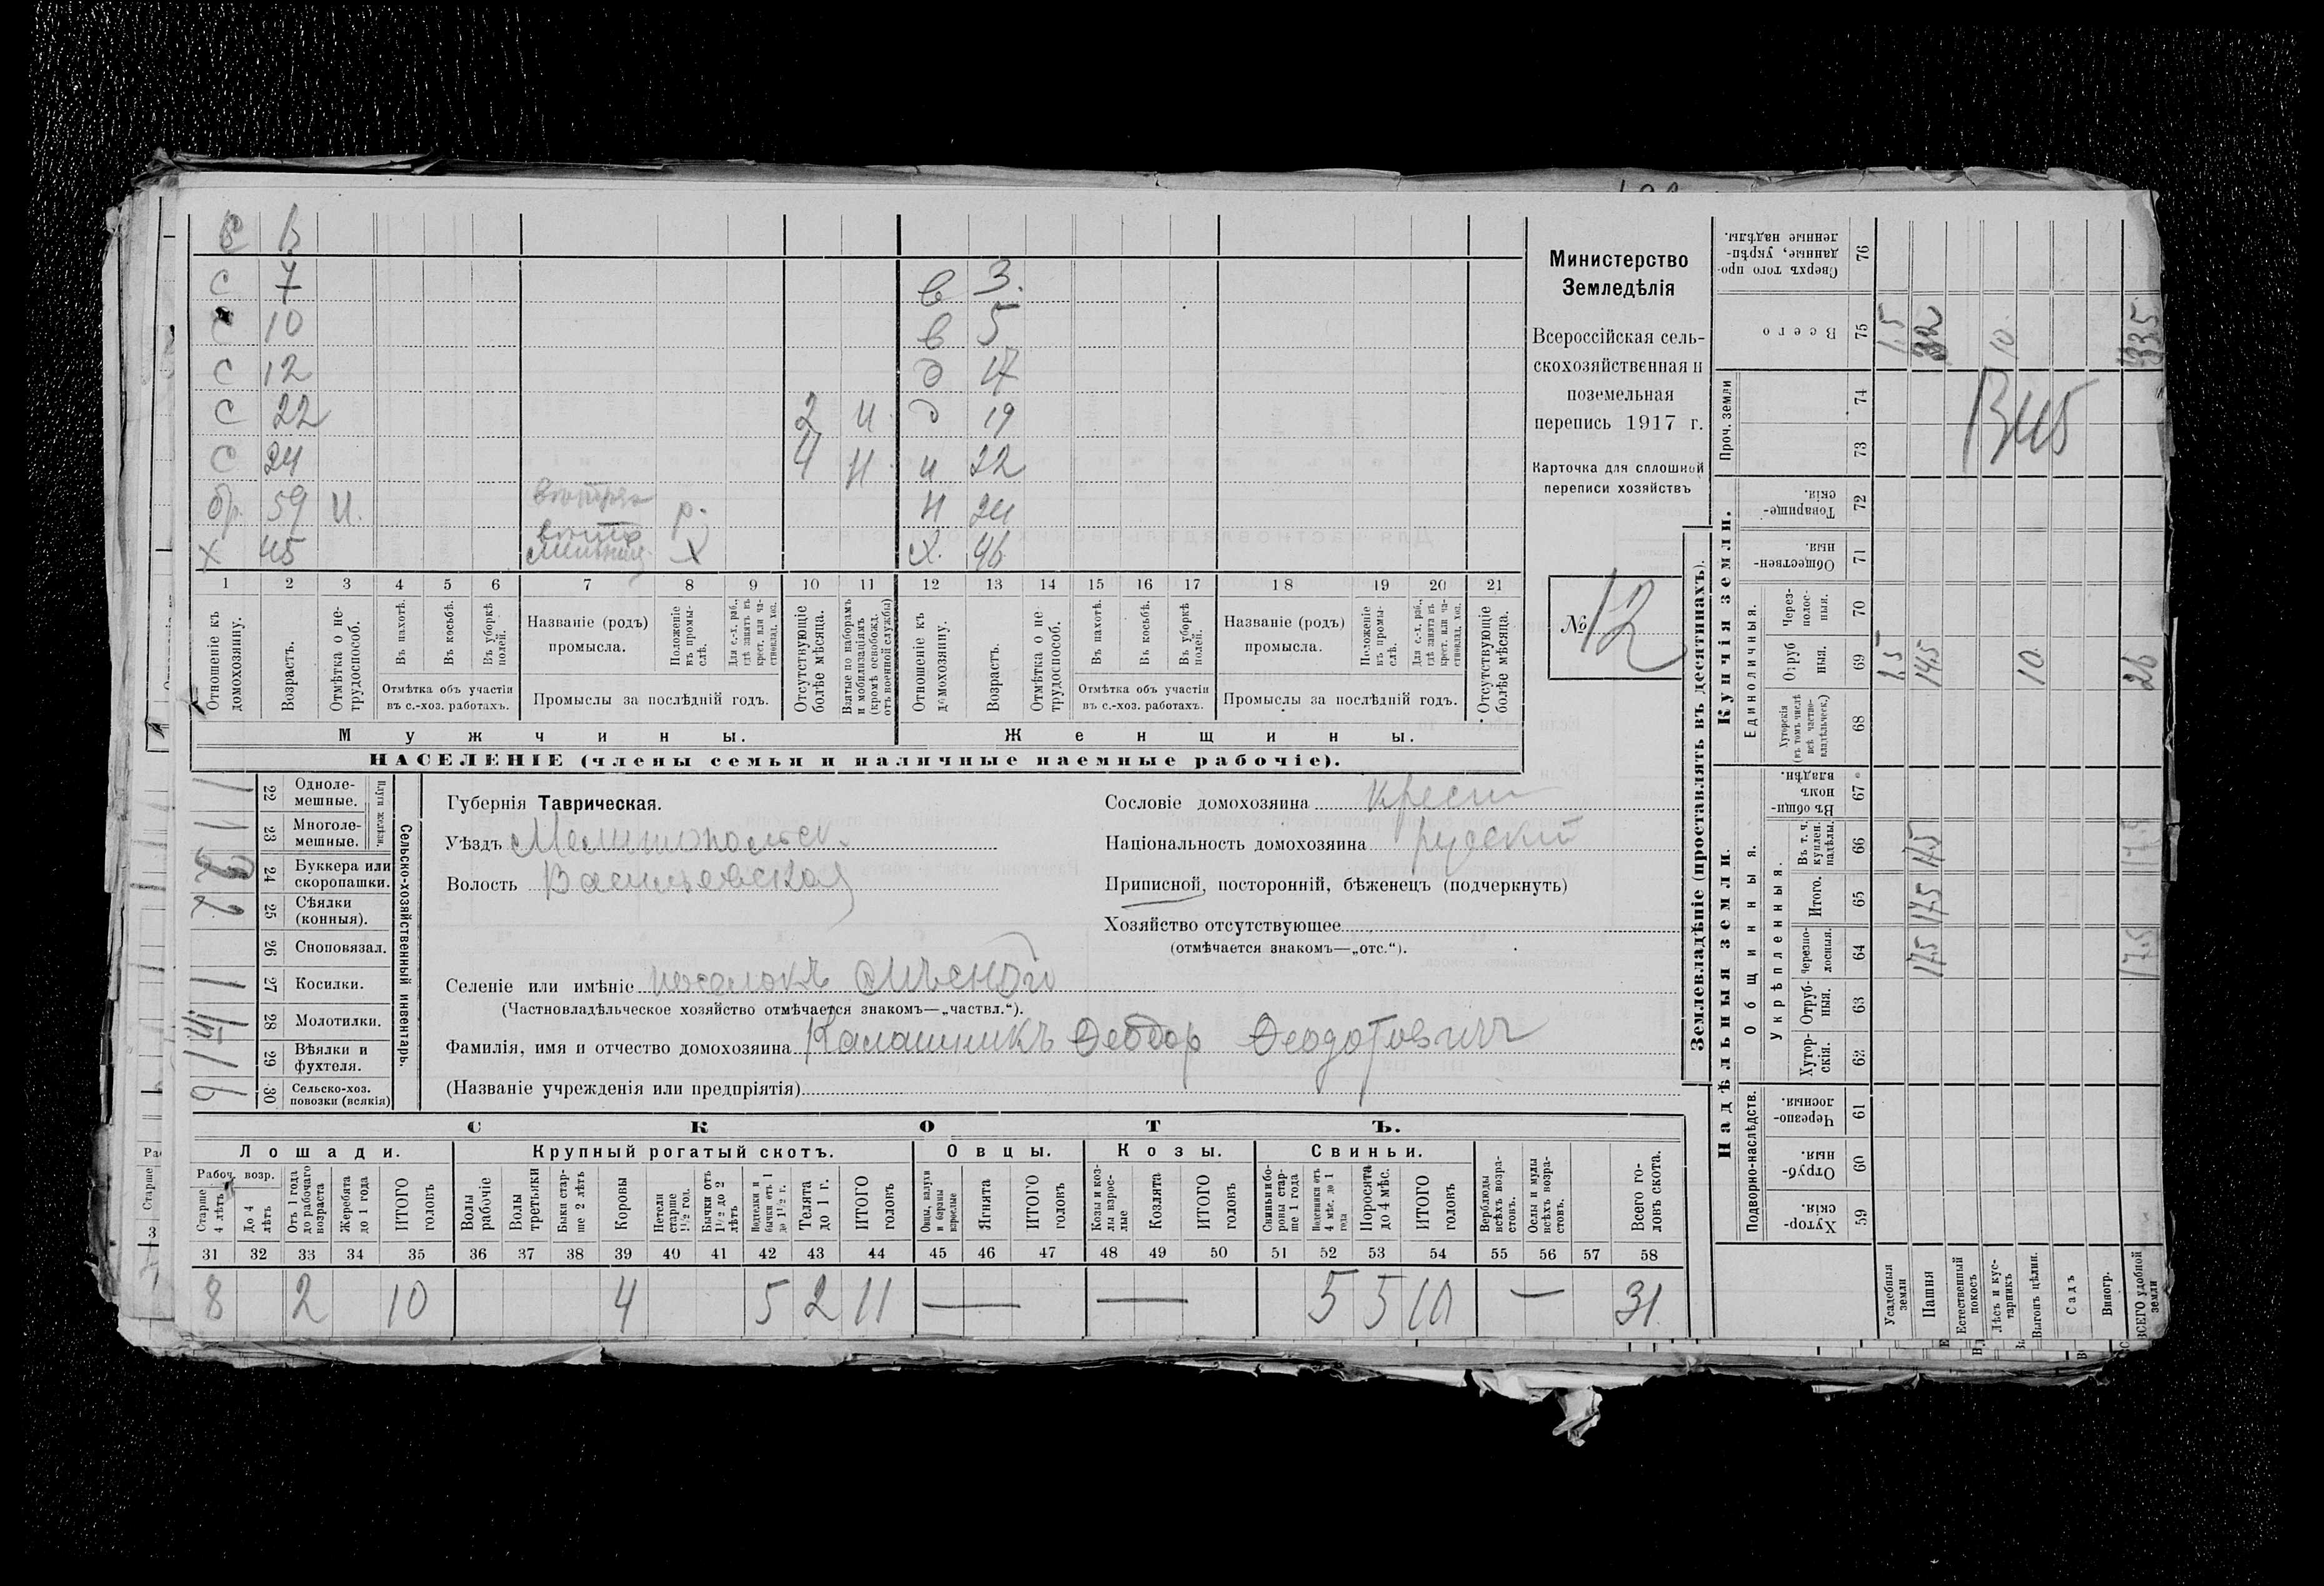 с 7 в 3.
с 10 в 5
с 12 д 17
с 22 2 д 19
с 24 4 н 22
бр. 59 н 24
х 45 х 46
1 2 3 4 5 6 7 8 9 10 11 12 13 14 15 16 17 18 19 20 21
Отношеніе къ домохозяину.
Возрастъ.
Отмѣтка о не-трудоспособ.
Въ пахотѣ.
Въ косьбѣ.
Въ уборкѣ полей.
Отмѣтка объ участіи
въ с.-хоз. работахъ.
Названіе (родъ)
промысла.
Положеніе въ промы-слѣ.
Для с.-х. раб., гдѣ занятъ въ крест. или ча-стновлад. хоз.
Промыслы за послѣдній годъ.
Отсутствующіе болѣе мѣсяца.
Взятые по наборамъ и мобилизаціямъ (кромѣ освобожд. отъ военной службы)
Отношеніе къ домохозяину.
Возрастъ.
Отмѣтка о не-трудоспособ.
Въ пахотѣ.
Въ косьбѣ.
Въ уборкѣ полей.
Отмѣтка объ участіи
въ с.-хоз. работахъ.
Названіе (родъ)
промысла.
Положеніе въ промы-слѣ.
Для с.-х. раб., гдѣ занята въ крест. или ча-стновлад. хоз.
Промыслы за послѣдній годъ.
Отсутствующіе болѣе мѣсяца.
Мужчины.
Женщины.
НАСЕЛЕНІЕ (члены семьи и наличные наемные рабочіе).
Министерство
Земледѣлія
Всероссійская сель-
скохозяйственная и
поземельная
перепись 1917 г.
Карточка для сплошной
переписи хозяйствъ
№ 12
Сельско-хозяйственный инвентарь.
Плуги желѣзн.
22 Одноле-мешные. 1
23 Многоле-мешные. 1
24 Буккера или скоропашки.
25 Сѣялки (конныя). 2
26 Сноповязал.
27 Косилки. 1
28 Молотилки.
29 Вѣялки и фухтеля. 1
30 Сельско-хоз. повозки (всякія)
Губернія Таврическая.
Уѣздъ Мелитопольск.
Волость Васильевская
Селеніе или имѣніе поселокъ
(Частновладѣльческое хозяйство отмѣчается знакомъ—„частвл.“).
Фамилія, имя и отчество домохозяина Калашникъ Ѳеодор Ѳеодотович
(Названіе учрежденія или предпріятія)
Сословіе домохозяина Крест
Національность домохозяина русскій
Приписной, посторонній, бѣженецъ (подчеркнуть)
Хозяйство отсутствующее
(отмѣчается знакомъ—„отс.“).
СКОТЪ.
Лошади. Крупный рогатый скотъ. Овцы. Козы. Свиньи.
Рабоч. возр.
Старше 4 лѣтъ
До 4 лѣтъ
Отъ 1 года до рабочаго возраста
Жеребята до 1 года
ИТОГО головъ
Волы рабочіе
Волы третьяки
Быки стар-ше 2 лѣтъ
Коровы
Нетели старше 1½ год.
Бычки отъ 1½ до 2 лѣтъ
Телята до 1 г.
ИТОГО головъ
Ягнята
ИТОГО головъ
Козы и коз-лы взрос-лые
Козлята
ИТОГО головъ
Свиньи и бо-ровы стар-ше 1 года
Поросята до 4 мѣс.
ИТОГО головъ
Верблюды всѣхъ возра-стовъ.
Ослы и мулы всѣхъ возра-стовъ.
Всего го-ловъ скота.
31 32 33 34 35 36 37 38 39 40 41 42 43 44 45 46 47 48 49 50 51 52 53 54 55 56 57 58
8 2 10 4 5 2 11 — — 5 5 10 — 31
Землевладѣніе (проставлять въ десятинахъ).
Купчія земли.
Надѣльныя земли.
Единоличныя.
Общинныя.
Укрѣпленныя.
Подворно-наслѣдств.
Проч. земли
Сверхъ того про-данные, укрѣп-ленные надѣлы. 76
Всего 75 1.5 10
74
73
Товарище-скія. 72
Обществен-ныя. 71
Через-полос-ныя. 70
Отруб-ныя. 69 1.5 14.5 10. 26
Хуторскія (въ томъ числѣ всѣ частно-владѣльческ.) 68
Въ общи-номъ владѣн. 67
Въ т. ч. куплен. надѣлы. 66 17.5
Итого. 65 17.5
Черезпо-лосныя. 64 17.5 17.5
Отруб-ныя. 63
Хутор-скія. 62
Черезпо-лосныя. 61
Отруб-ныя. 60
Хутор-скія. 59
Усадебныя земли
Пашня
Естественный покосъ
Лѣсъ и кус-тарникъ
Выгонъ цѣлин.
Садъ
Виногр.
ВСЕГО удобной земли